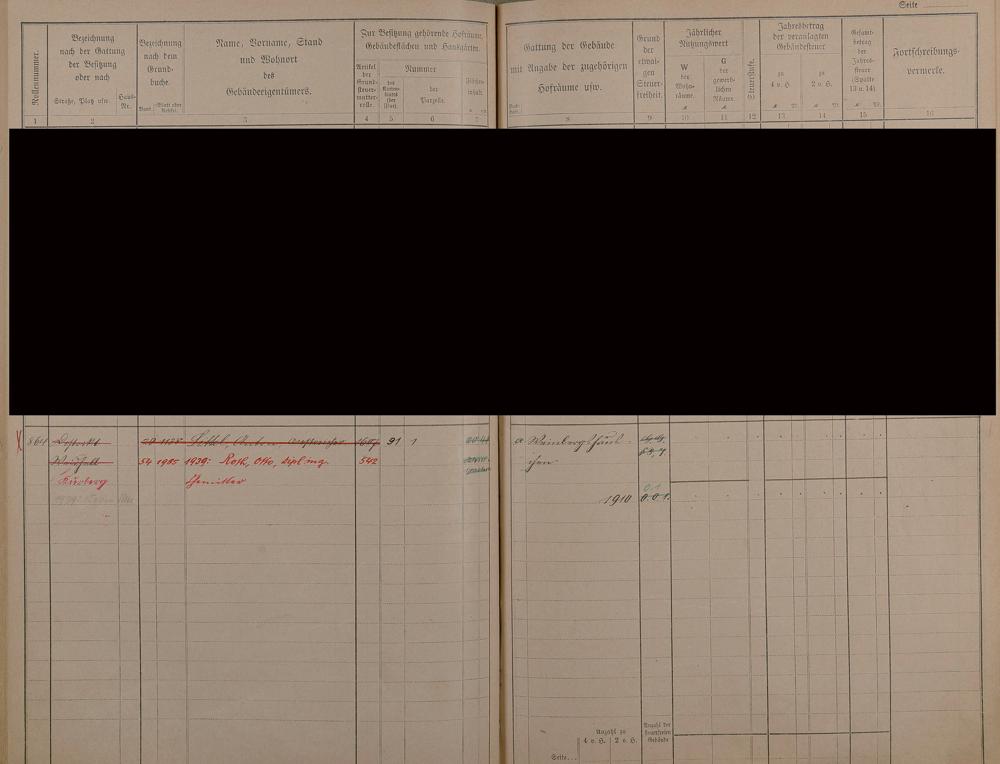 Seite
Rollennummer.
Bezeichnung
nach der Gattung
der Besitzung
oder nach
Straße, Platz usw.
Haus-
Nr.
Bezeichnung
nach dem
Grund-
buche.
Band.
Blatt oder
Artikel.
Name, Vorname, Stand
und Wohnort
des
Gebäudeeigentümers.
Zur Besitzung gehörende Hofräume,
Gebäudeflächen und Hausgärten.
Artikel
der
Grund-
steuer-
mutter-
rolle.
Nummer
des
Karten-
blattes
(der
Flur).
der
Parzelle.
Flächen-
inhalt.
1 2 3 4 5 6 7
Gattung der Gebäude
mit Angabe der zugehörigen
Hofräume usw.
Grund
der
etwai-
gen
Steuer-
freiheit.
Jährlicher
Nutzungswert
W
der
Wohn-
räume.
G
der
gewerb-
lichen
Räume.
Steuerstufe.
Jahresbetrag
der veranlagten
Gebäudesteuer
zu
4 v. H.
zu
2 v. H.
Gesamt-
betrag
der
Jahres-
steuer
(Spalte
13 u. 14).
Fortschreibungs-
vermerke.
8 9 10 11 12 13 14 15 16
91 1
a Weinbergshäus-
chen
54 1985 1939: Roth, Otto, Dipl. Ing. 542
Chemiker
1910
Anzahl zu
4 v. H. 2 v. H.
Anzahl der
steuerfreien
Gebäude
Seite...